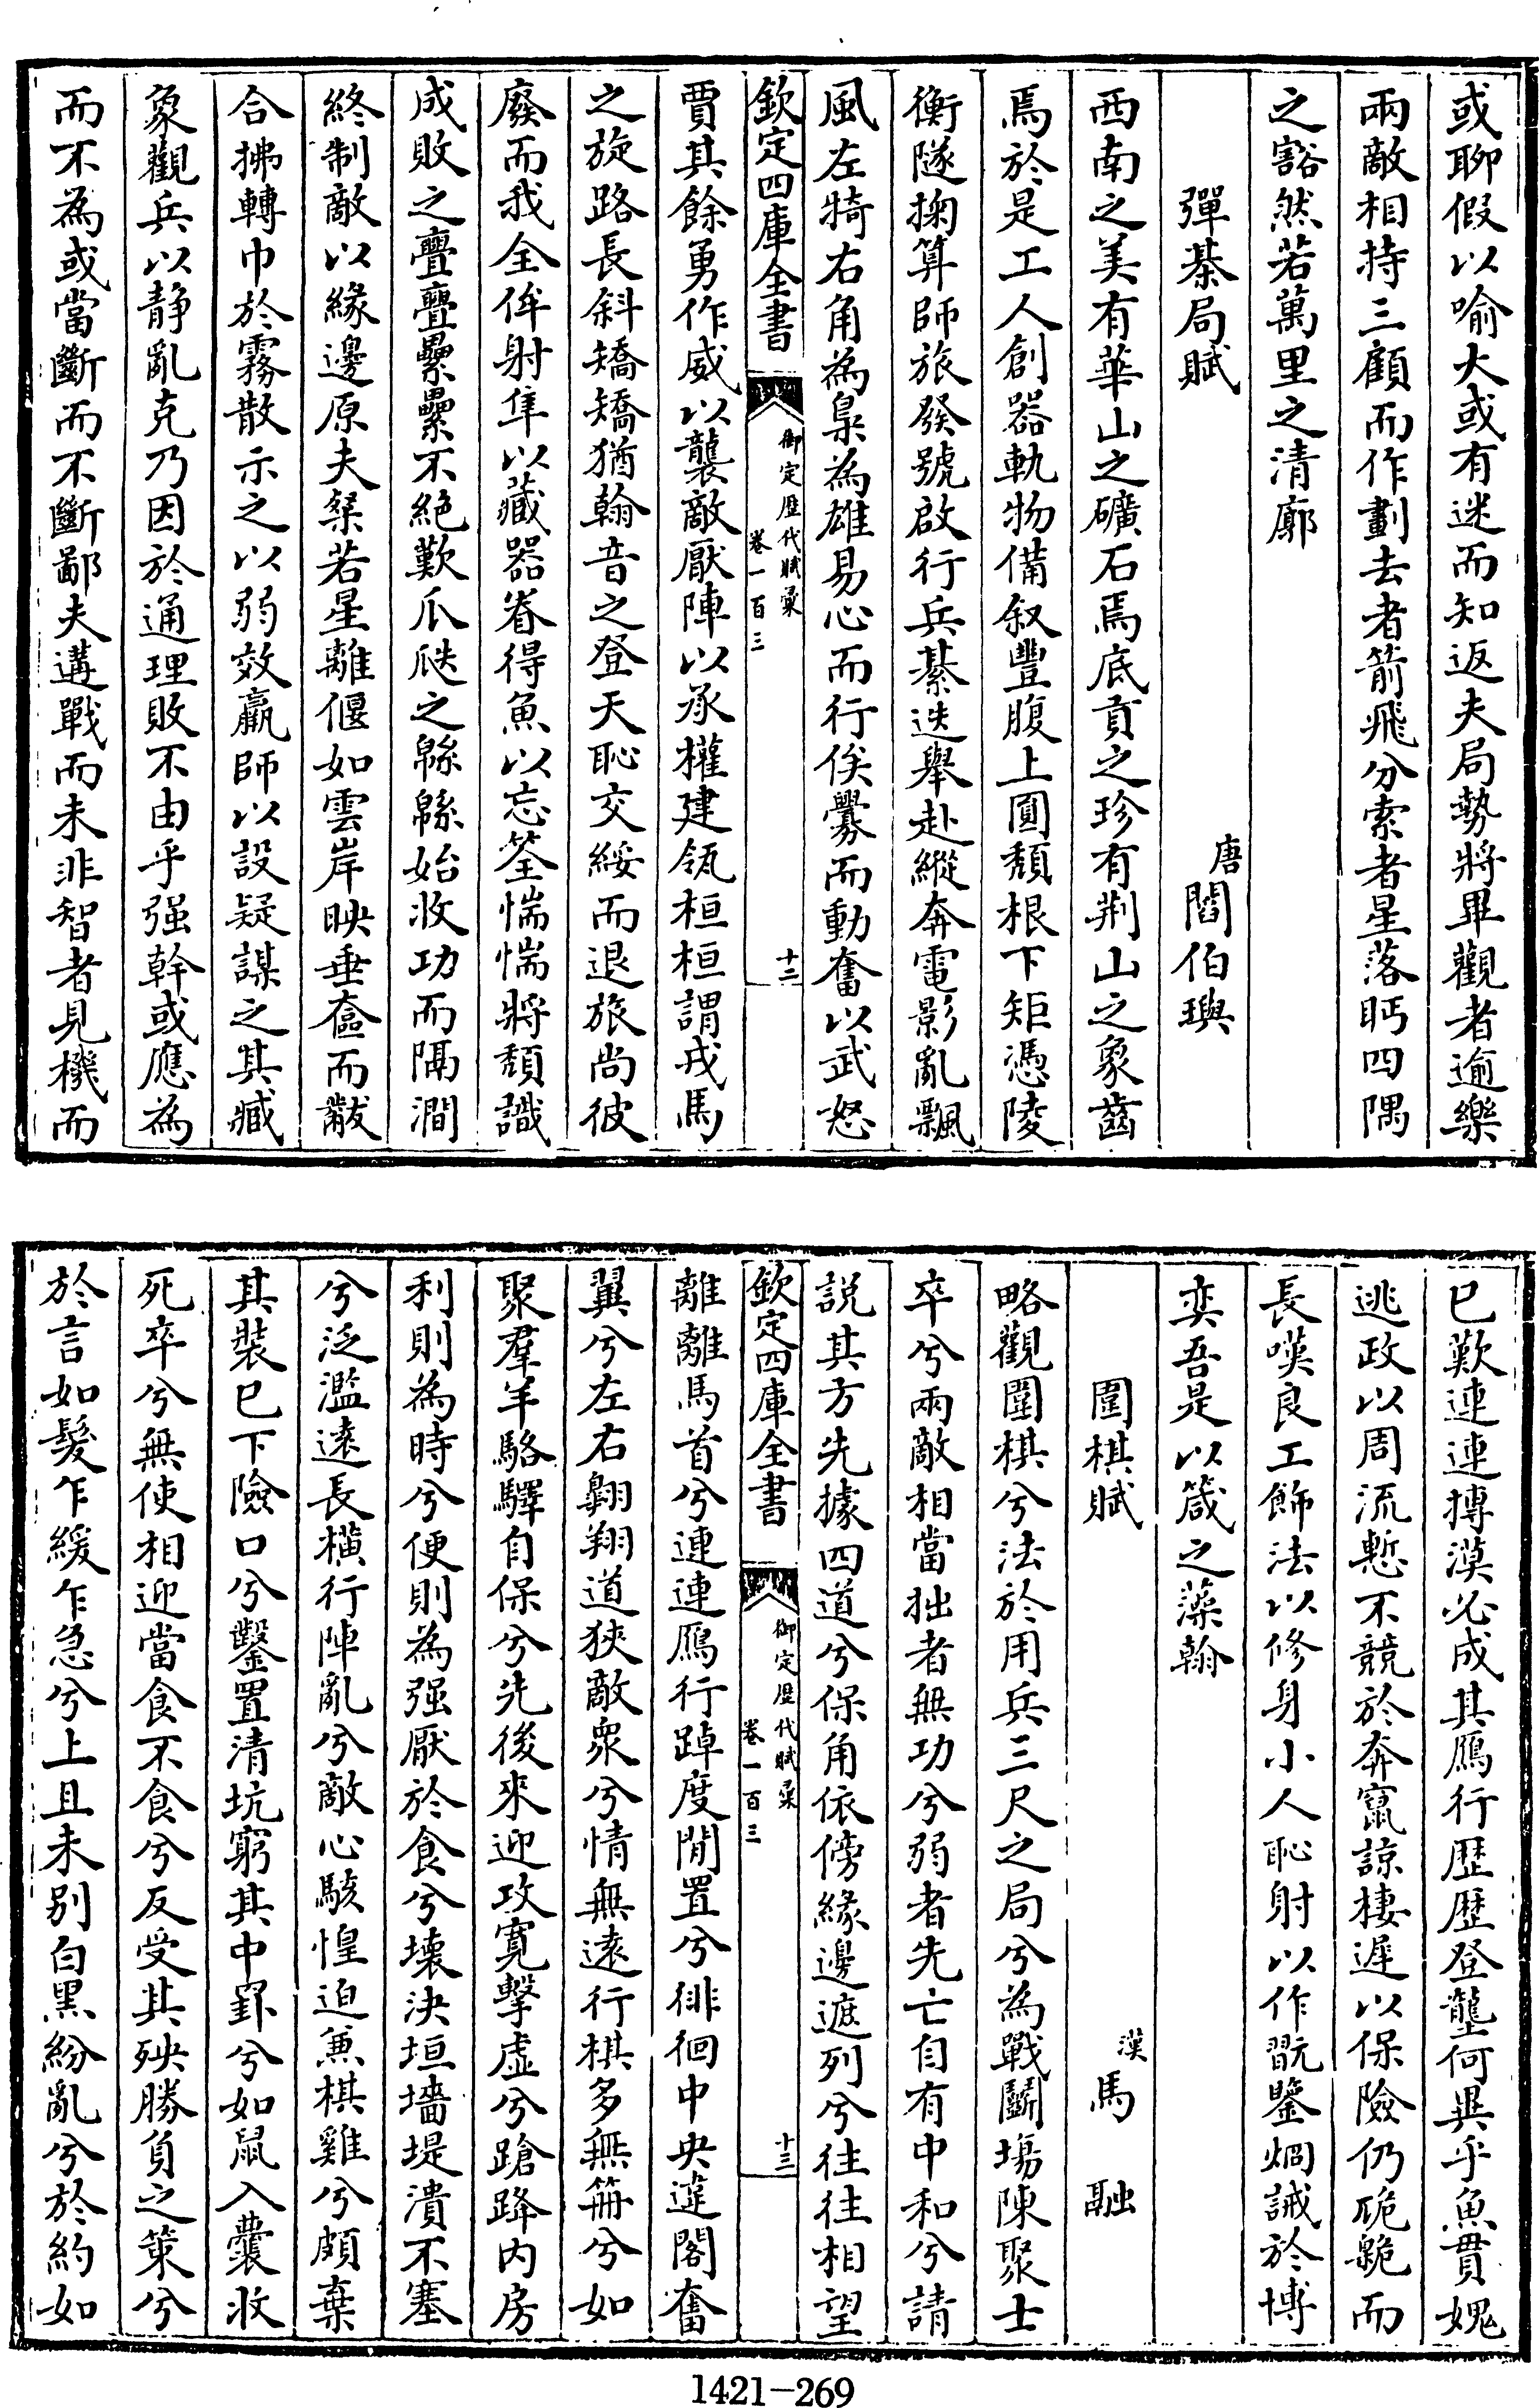 或聊假以喻大或有迷而知返夫局勢將畢觀者逾樂
兩敵相持三顧而作劃去者箭飛分索者星落眄四隅
之豁然若萬里之清廓
彈棊局賦
唐閻伯璵
西南之美有華山之礦石焉底貢之珍有荆山之象齒
焉於是工人創器軌物備叙豐腹上圓頽根下矩憑陵
衡隧掬算師旅發號啟行兵綦迭舉赴縱奔電影亂飄
風左犄右角為梟為雄易心而行俟釁而動奮以武怒
欽定四庫全書
御定歴代賦彙
卷一百三
十二
賈其餘勇作威以襲敵厭陣以承權建瓴桓桓謂戎馬
之旋路長斜矯矯猶翰音之登天恥交綏而退旅尚彼
廢而我全侔射隼以藏器眷得魚以忘筌惴惴將頽識
成敗之亹亹纍纍不絶歎瓜瓞之緜緜始收功而隔澗
終制敵以緣邊原夫粲若星離偃如雲岸映垂奩而黻
合拂轉巾於霧散示之以弱效羸師以設疑謀之其臧
象觀兵以静亂克乃因於通理敗不由乎强幹或應為
而不為或當斷而不斷鄙夫遘戰而未非智者見機而
已歎連連摶漠必成其鴈行歴歴登壟何異乎魚貫媿
逃政以周流慙不競於奔竄諒棲遲以保險仍硊𡾋而
長嘆良工飾法以修身小人恥射以作翫鑒烱誡於博
奕吾是以箴之藻翰
圍棋賦
漢馬融
略觀圍棋兮法於用兵三尺之局兮為戰鬭塲陳聚士
卒兮兩敵相當拙者無功兮弱者先亡自有中和兮請
説其方先據四道兮保角依傍緣邊遮列兮往往相望
欽定四庫全書
御定歴代賦彙
卷一百三
十三
離離馬首兮連連鴈行踔度閒置兮徘徊中央違閣奮
翼兮左右翱翔道狹敵衆兮情無遠行棋多無册兮如
聚羣羊駱驛自保兮先後來迎攻寛擊虚兮蹌跭内房
利則為時兮便則為强厭於食兮壞決垣墻堤潰不塞
兮泛濫遠長橫行陣亂兮敵心駭惶迫兼棋雞兮頗棄
其裝已下險口兮鑿置清坑窮其中罫兮如鼠入囊收
死卒兮無使相迎當食不食兮反受其殃勝負之策兮
於言如髮乍緩乍急兮上且未别白黑紛亂兮於約如
1421-269